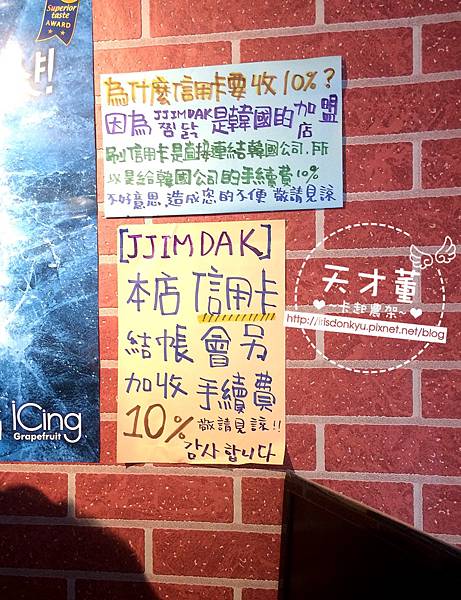 Superior
taste
AWARD
!
為什麼信用卡要收10%?
因為 JJIMDAK 찜닭 是韓國的加盟店
刷信用卡是直接連結韓國公司.所
以是給韓國公司的手續費10%
不好意思.造成您的不便 敬請見諒
[JJIMDAK]
本店信用卡
結帳會另
加收手續費
10% 敬請見諒!!
감사합니다
iCing
Grapefruit
天才董
~卡起農架~
http://irisdonkyu.pixnet.net/blog